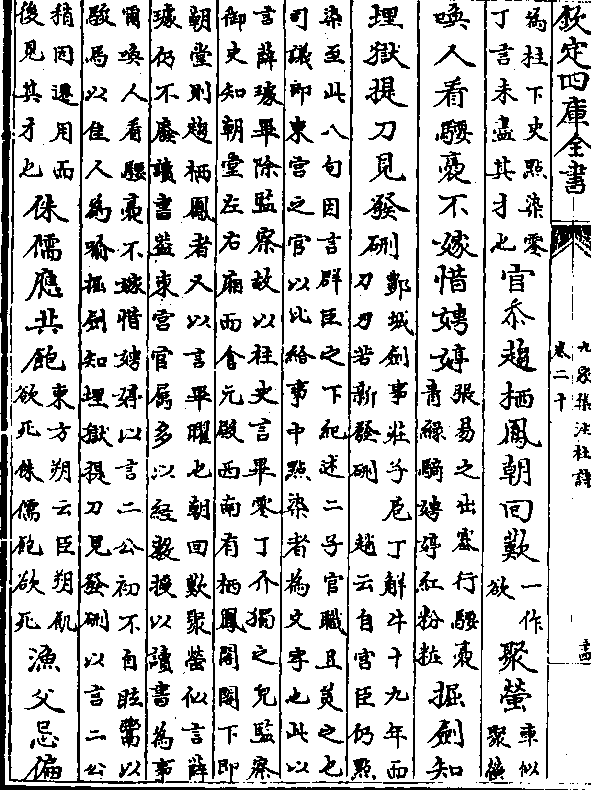 欽定四庫全書
九家集注杜詩
卷二十
十四
為柱下史點染零
丁言未盡其才也
官忝趨栖鳳朝回歎
一作
欲
聚螢
喚人看騕褭不嫁惜娉婷
張易之出塞行騕褭
青絲騎娉婷紅粉粧
掘劍知
埋獄提刀見發硎
酆城劍事莊子庖丁解牛十九年而
刀刃若新發硎 趙云自官臣仍點
染至此八句因言群臣之下紀述二子官職且美之也
司議即東宮之官以比給事中點染者為文字也此以
言薛璩畢除監察故以柱史言畢零丁介獨之皃監察
御史知朝堂左右廂而含元殿西南有栖鳳閣閣下即
朝堂則趨栖鳳者又以言畢曜也朝回歎聚螢似言薛
璩仍不廢讀書蓋東宮官屬多以經教授以讀書為事
爾喚人看騕褭不嫁惜娉婷以言二公初不自眩鬻以
駿馬以佳人為喻掘劍知埋獄提刀見發硎以言二公
稍因遷用而
後見其才也
侏儒應共飽
東方朔云臣朔飢
欲死侏儒飽欲死
漁父忌偏